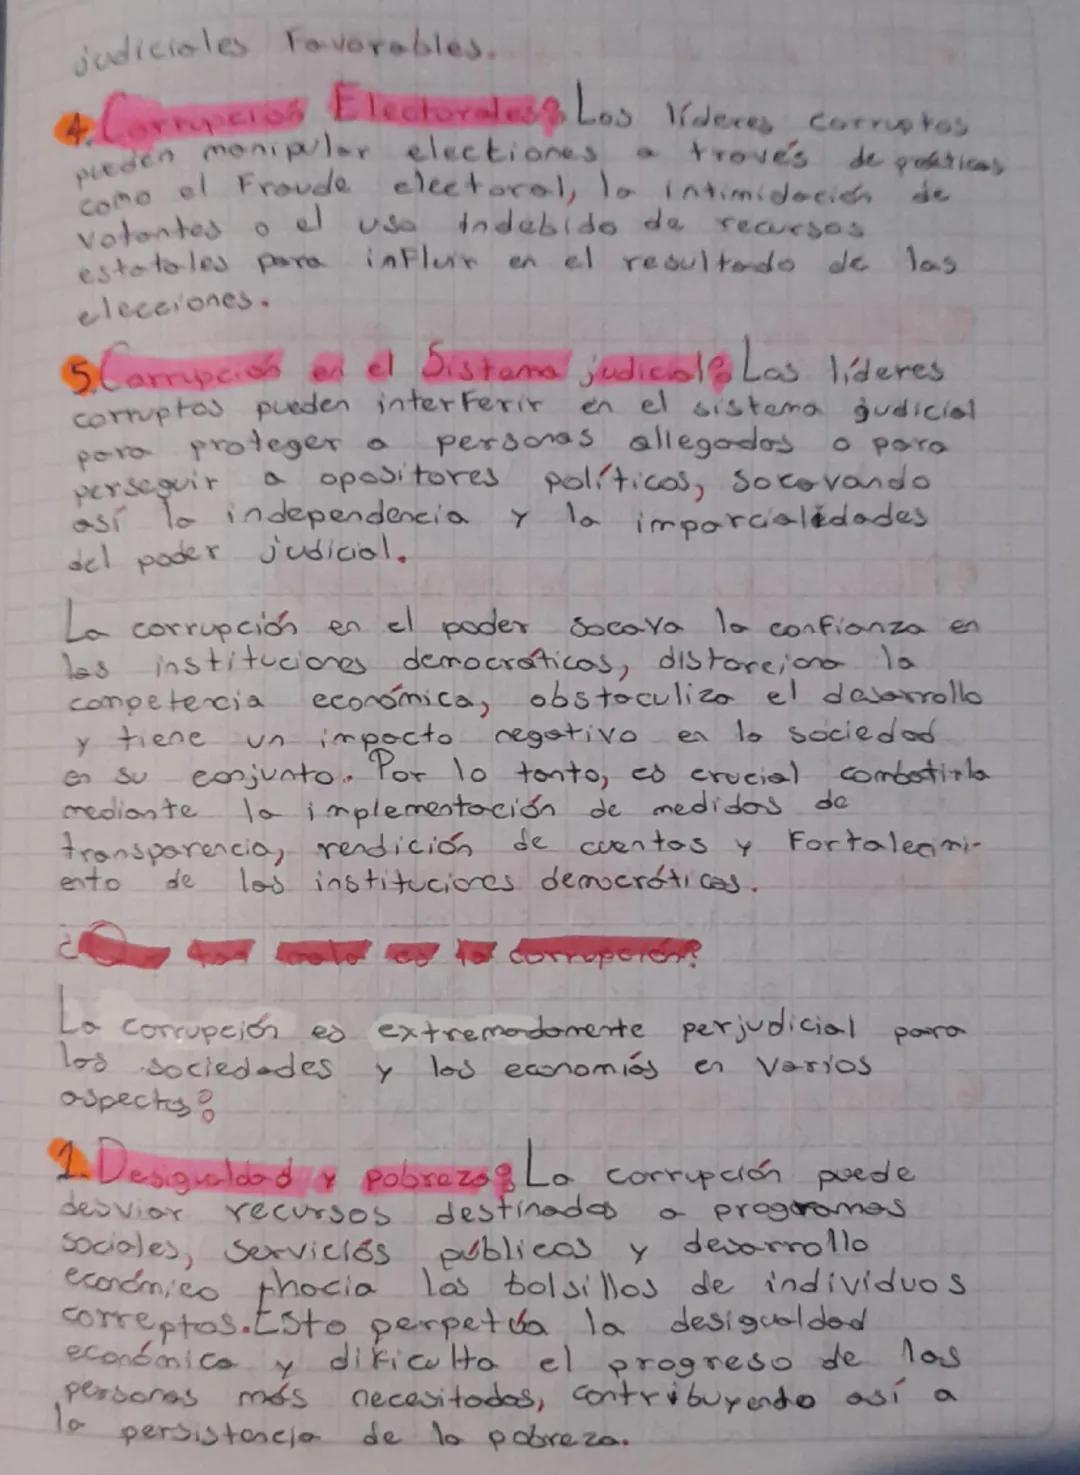 judiciales Favorables.
4. Corrupción Electorales: Los líderes corruptos
pueden manipular electiones a través de
como el Fraude electoral, la intimidación de
votantes o el uso indebido de recursos
estatales para influir en el resultado de las
elecciones.
5. Corrupción en el Sistema judicial: Los líderes
corruptos pueden interferir en el sistema judicial
para proteger a personas allegados o para
perseguir a opositores políticos, socavando
así la independencia y la imparcialidades
del poder judicial.
La corrupción en el poder socava la confianza en
las instituciones democráticas, distorciona la
competencia económica, obstaculiza el desarrollo
y tiene un impacto negativo en la sociedad
en su conjunto. Por lo tanto, es crucial combatirla
mediante la implementación de medidas de
transparencia, rendición de cuentas y Fortalecimi-
ento de las instituciones democráticas.
tan mala es la corrupción?
La corrupción es extremadamente perjudicial para
las sociedades y las economías en varios
aspectos:
1. Desigualdad y pobreza: La corrupción puede
desviar recursos destinados a programas
sociales, servicios públicos y desarrollo
económico hacia los bolsillos de individuos
correptos. Esto perpetúa la desigualdad
económica y dificulta el progreso de las
personas más necesitadas, contribuyendo así a
la persistencia de la pobreza.